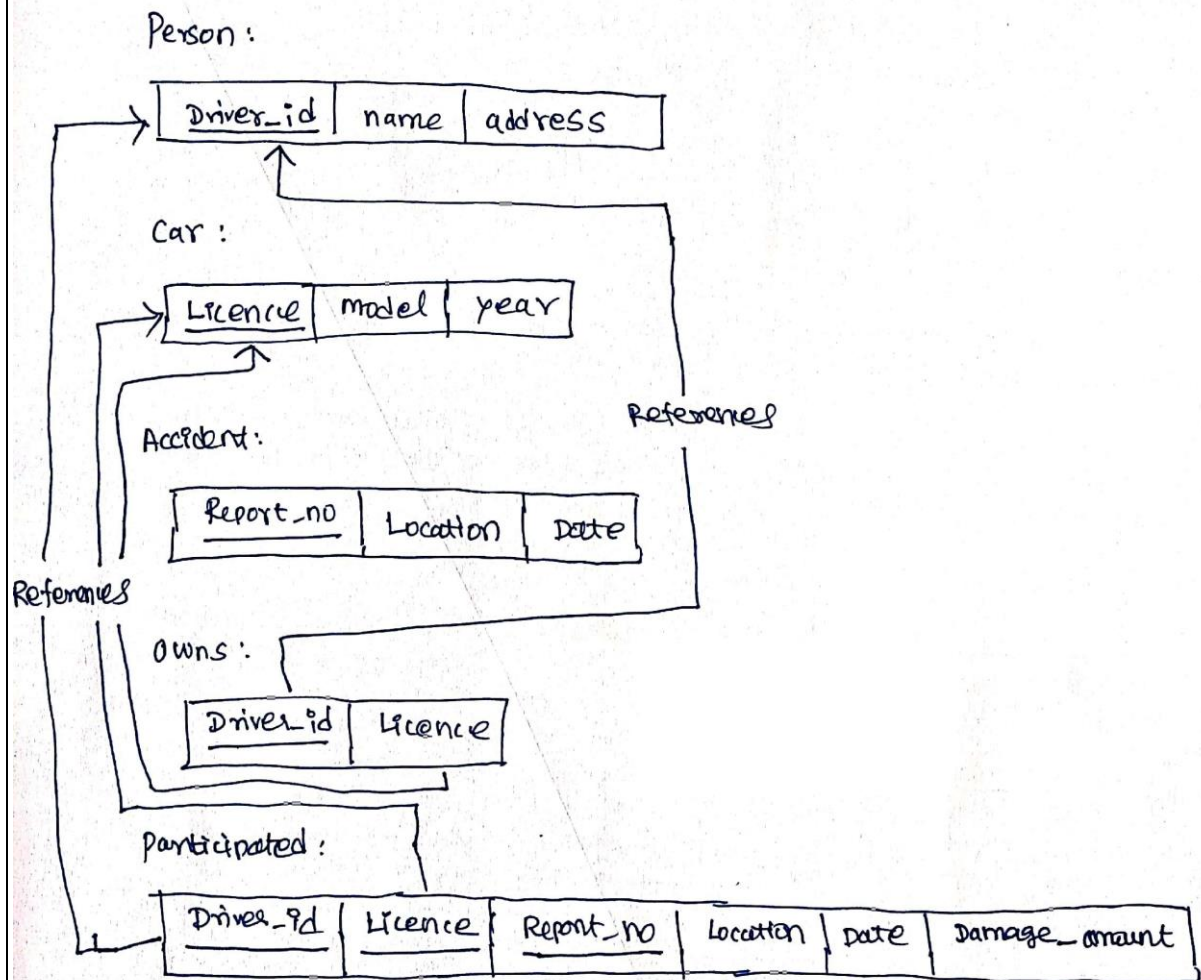 Person:
Driver_id name address
Car:
Licence model year
References
Accident:
Report_no Location Date
References
Owns:
Driver_id Licence
Participated:
Driver_id Licence Report_no Location Date Damage_amount